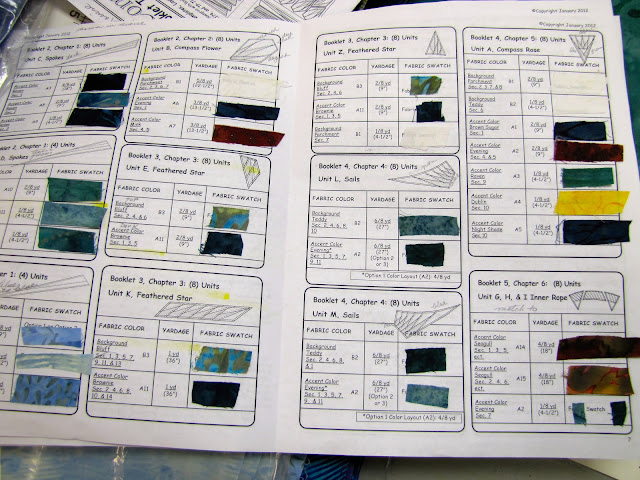 ©Copyright January 2012
Booklet 2, Chapter 1: (8) Units
Unit C, Spokes
FABRIC COLOR YARDAGE FABRIC SWATCH
Booklet 2, Chapter 2: (8) Units
Unit B, Compass Flower
FABRIC COLOR YARDAGE FABRIC SWATCH
Background
Parchment B1
Accent Color
Evening A6
Sec. 1
Accent Color
A7
Sec. 4, 5
Chapter 1: (4) Units
D, Spokes
COLOR YARDAGE FABRIC SWATCH
A10 1/8 yd
(4-1/2")
1/8 yd
(4-1/2")
Booklet 3, Chapter 3: (8) Units
Unit E, Feathered Star
FABRIC COLOR YARDAGE FABRIC SWATCH
Background
Bluff B3 2/8 yd
Sec. 2, 4, 6 (9")
Accent Color
Brownie A11 2/8 yd
Sec. 1, 3, 5 (9")
1: (4) Units
YARDAGE FABRIC SWATCH
Booklet 3, Chapter 3: (8) Units
Unit K, Feathered Star
FABRIC COLOR YARDAGE FABRIC SWATCH
Background
Bluff B3 1 yd
Sec. 1, 3, 5, 7, (36")
9, 11, & 13
Accent Color
Brownie A11 1 yd
Sec. 2, 4, 6, 8, (36")
10, & 14
©Copyright January 2012
Booklet 3, Chapter 3: (8) Units
Unit Z, Feathered Star
FABRIC COLOR YARDAGE FABRIC SWATCH
Background
Bluff B3 2/8 yd
Sec. 2, 4, 6 (9")
Accent Color
Brownie A11 2/8 yd
Sec. 1, 3, 5 (9")
Background
Parchment B1 2/8 yd
Sec. 7 (9")
Booklet 4, Chapter 4: (8) Units
Unit L, Sails
FABRIC COLOR YARDAGE FABRIC SWATCH
Background
Teddy B2 6/8 yd
Sec. 2, 4, 6, 8, (27")
10
Accent Color
Evening* A2 6/8 yd
Sec. 1, 3, 5, 7, (27")
9, 11 Option 2
or 3)
*Option 1 Color Layout (A2): 4/8 yd
Booklet 4, Chapter 4: (8) Units
Unit M, Sails
FABRIC COLOR YARDAGE FABRIC SWATCH
Background
Teddy B2 6/8 yd
Sec. 2, 4, 6, 8, (27")
Accent Color
Evening* A2 6/8 yd
Sec. 1, 3, 5, 7, (27")
9, & 11 (Option 2
or 3)
*Option 1 Color Layout (A2): 4/8 yd
Booklet 4, Chapter 5: (8) Units
Unit A, Compass Rose
FABRIC COLOR YARDAGE FABRIC SWATCH
Background
Parchment B1 2/8 yd
Sec. 2, 3, 7, 8, 5 (9")
Background
Teddy B2 1/8 yd
Sec. 6 (4-1/2")
Accent Color
Brown Sugar A1 2/8 yd
Sec. 1 (9")
Accent Color
Evening A2 2/8 yd
Sec. 4, 6, 5 (9")
Accent Color
Raven A3 1/8 yd
Sec. 9 (4-1/2")
Accent Color
Dublin A4 1/8 yd
Sec. 10 (4-1/2")
Accent Color
Night Shade A5 1/8 yd
Sec. 10 (4-1/2")
Booklet 5, Chapter 6: (8) Units
Unit G, H, & I Inner Rope
FABRIC COLOR YARDAGE FABRIC SWATCH
Accent Color
Seagull A14 4/8 yd
Sec. 1, 3, 5, (18")
ect.
Accent Color
Seagull A15 4/8 yd
Sec. 2, 4, 6, (18")
ect.
Accent Color
Evening A2 1/8 yd
Sec. 7 (4-1/2")
Swatch
7